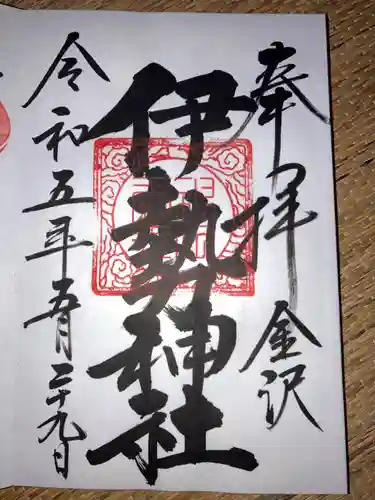 奉拝
金沢
伊勢神社
令和五年五月二十九日